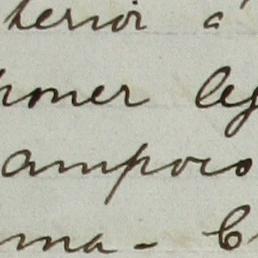 terior á
poner leg
ampoco
ma - C